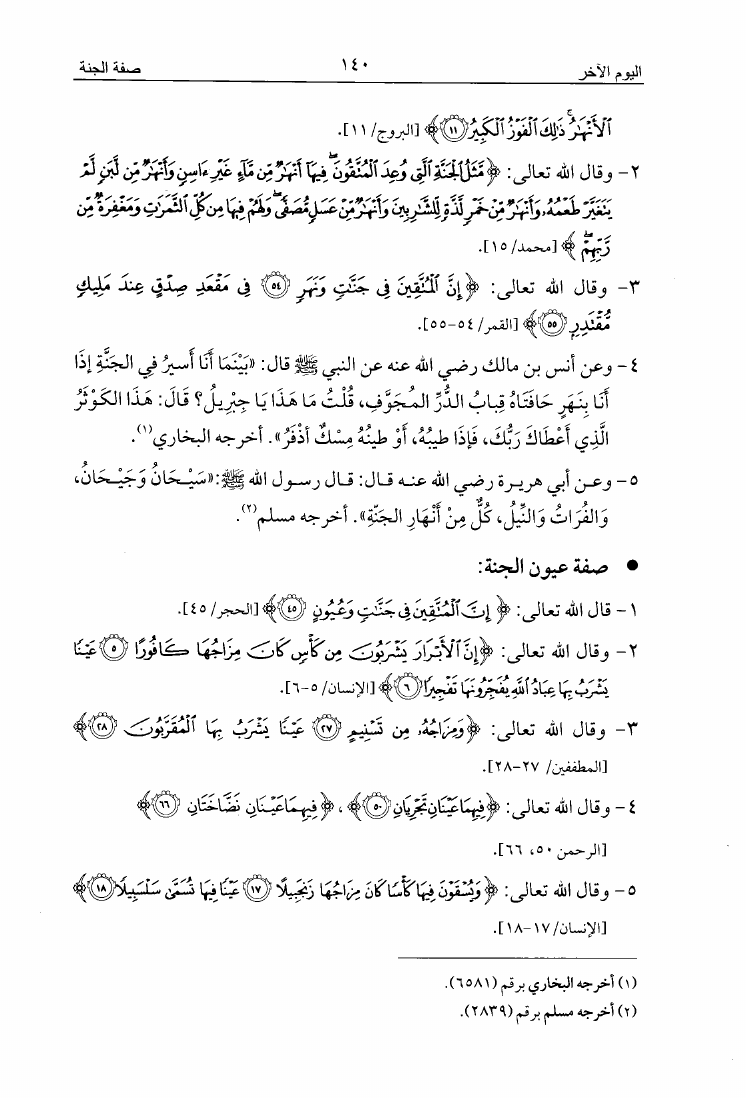 اليوم الآخر ١٤٠ صفة الجنة
ٱلْأَنْهَٰرُ ۚ ذَٰلِكَ ٱلْفَوْزُ ٱلْكَبِيرُ ﴿١١﴾ ﴾ [البروج/١١].
٢- وقال الله تعالى: ﴿ مَّثَلُ ٱلْجَنَّةِ ٱلَّتِى وُعِدَ ٱلْمُتَّقُونَ ۖ فِيهَآ أَنْهَٰرٌ مِّن مَّآءٍ غَيْرِ ءَاسِنٍ وَأَنْهَٰرٌ مِّن لَّبَنٍ لَّمْ
يَتَغَيَّرْ طَعْمُهُۥ وَأَنْهَٰرٌ مِّنْ خَمْرٍ لَّذَّةٍ لِّلشَّٰرِبِينَ وَأَنْهَٰرٌ مِّنْ عَسَلٍ مُّصَفًّى ۖ وَلَهُمْ فِيهَا مِن كُلِّ ٱلثَّمَرَٰتِ وَمَغْفِرَةٌ مِّن
رَّبِّهِمْ ۖ ﴾ [محمد/١٥].
٣- وقال الله تعالى: ﴿ إِنَّ ٱلْمُتَّقِينَ فِى جَنَّٰتٍ وَنَهَرٍ ﴿٥٤﴾ فِى مَقْعَدِ صِدْقٍ عِندَ مَلِيكٍ
مُّقْتَدِرٍۭ ﴿٥٥﴾ ﴾ [القمر/٥٤-٥٥].
٤- وعن أنس بن مالك رضي الله عنه عن النبي ﷺ قال: «بَيْنَمَا أَنَا أَسِيرُ فِي الجَنَّةِ إذَا
أَنَا بِنَهَرٍ حَافَتَاهُ قِبابُ الدُّرِّ المُجَوَّفِ، قُلْتُ مَا هَذَا يَا جِبْرِيلُ؟ قَالَ: هَذَا الكَوْثَرُ
الَّذِي أَعْطَاكَ رَبُّكَ، فَإِذَا طيبُهُ، أَوْ طينُهُ مِسْكٌ أَذْفَرُ». أخرجه البخاري(١).
٥- وعن أبي هريرة رضي الله عنه قال: قال رسول الله ﷺ: «سَيْحَانُ وَجَيْحَانُ،
وَالفُرَاتُ وَالنِّيلُ، كُلٌّ مِنْ أَنْهَارِ الجَنَّةِ». أخرجه مسلم(٢).
● صفة عيون الجنة:
١- قال الله تعالى: ﴿ إِنَّ ٱلْمُتَّقِينَ فِى جَنَّٰتٍ وَعُيُونٍ ﴿٤٥﴾ ﴾ [الحجر/٤٥].
٢- وقال الله تعالى: ﴿ إِنَّ ٱلْأَبْرَارَ يَشْرَبُونَ مِن كَأْسٍ كَانَ مِزَاجُهَا كَافُورًا ﴿٥﴾ عَيْنًا
يَشْرَبُ بِهَا عِبَادُ ٱللَّهِ يُفَجِّرُونَهَا تَفْجِيرًا ﴿٦﴾ ﴾ [الإنسان/٥-٦].
٣- وقال الله تعالى: ﴿ وَمِزَاجُهُۥ مِن تَسْنِيمٍ ﴿٢٧﴾ عَيْنًا يَشْرَبُ بِهَا ٱلْمُقَرَّبُونَ ﴿٢٨﴾ ﴾
[المطففين/ ٢٧-٢٨].
٤- وقال الله تعالى: ﴿ فِيهِمَا عَيْنَانِ تَجْرِيَانِ ﴿٥٠﴾ ﴾ ، ﴿ فِيهِمَا عَيْنَانِ نَضَّاخَتَانِ ﴿٦٦﴾ ﴾
[الرحمن ٥٠، ٦٦].
٥- وقال الله تعالى: ﴿ وَيُسْقَوْنَ فِيهَا كَأْسًا كَانَ مِزَاجُهَا زَنجَبِيلًا ﴿١٧﴾ عَيْنًا فِيهَا تُسَمَّىٰ سَلْسَبِيلًا ﴿١٨﴾ ﴾
[الإنسان/١٧-١٨].
(١) أخرجه البخاري برقم (٦٥٨١).
(٢) أخرجه مسلم برقم (٢٨٣٩).